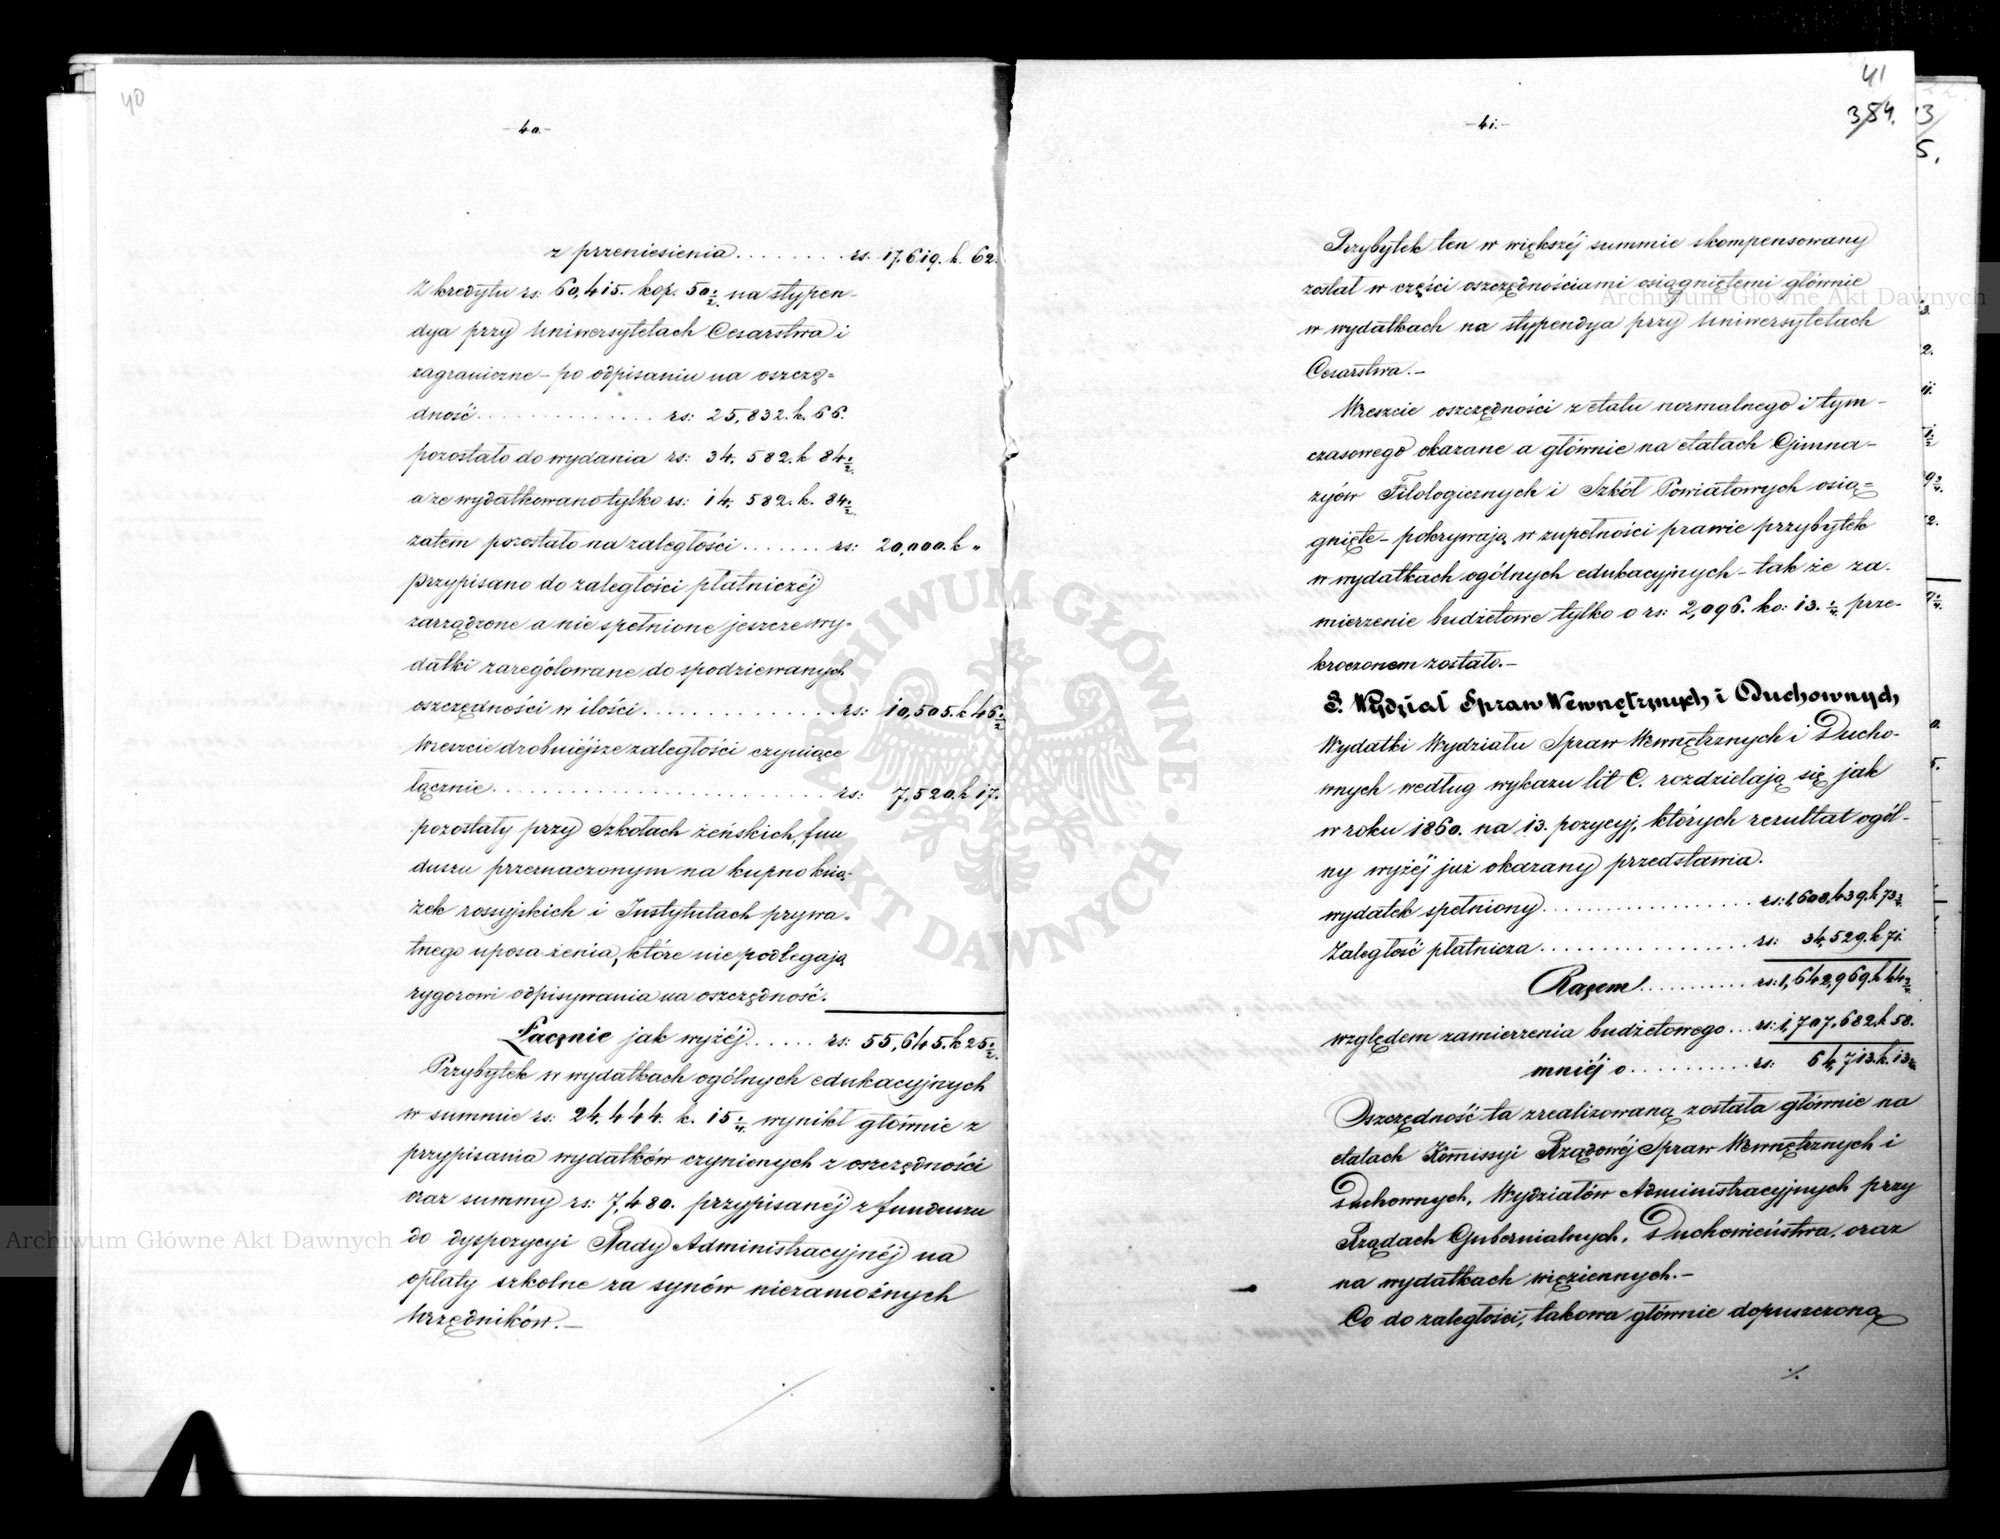 40
-40.-
z przeniesienia ........ rs: 17.619. k. 62.
Z kredytu rs: 60,415. kop. 50½ na stypen-
dya przy Uniwersytetach Cesarstwa i
zagraniczne - po odpisaniu na oszczę=
dność .............. rs: 25,832. k. 66.
pozostało do wydania rs: 34,582. k 84½
a że wydatkowano tylko rs: 14,582. k. 84½
zatem pozostało na zaległości ....... rs: 20,000. k „
przypisano do zaległości płatniczéj
zarządzone a nie spełnione jeszcze wy=
datki zarególowane do spodziewanych
oszczędności w ilości ............... rs: 10,505. k 46½
Wreszcie drobniejsze zaległości czyniące
łącznie .......................... rs: 7,520. k 17.
pozostały przy Szkołach żeńskich, fun
duszu przeznaczonym na kupno ksią-
żek rossyjskich i Instytutach prywa-
tnego uposażenia, które nie podlegają
rygorowi odpisywania na oszczędność.
Łącznie jak wyżéj ...... rs: 55,645. k 25½
Przybytek w wydatkach ogólnych edukacyjnych
w summie rs: 24,444. k. 15¼ wynikł głównie z
przypisania wydatków czynionych z oszczędności
oraz summy rs: 7,480. przypisanéj z funduszu
do dyspozycyi Rady Administracyjnéj na
opłaty szkolne za synów niezamożnych
Urzędników.-
41
384.
-41.-
Przybytek ten w większéj summie skompensowany
został w części oszczędnościami osiągniętemi głównie
w wydatkach na stypendya przy Uniwersytetach
Cesarstwa.-
Wreszcie oszczędności z etatu normalnego i tym-
czasowego okazane a głównie na etatach Gimna-
zyów Filologicznych i Szkół Powiatowych osią=
gnięte - pokrywają w zupełności prawie przybytek
w wydatkach ogólnych edukacyjnych - tak że za-
mierzenie budżetowe tylko o rs: 2,096. ko: 13.¼ prze-
kroczonem zostało.-
Wydział Spraw Wewnętrznych i Duchownych
Wydatki Wydziału Spraw Wewnętrznych i Ducho-
wnych według wykazu lit C. rozdzielają się jak
w roku 1860. na 13. pozycyj, których rezultat ogól-
ny wyżéj już okazany przedstawia.
wydatek spełniony .................. rs: 1,608,439. k 73¾
Zaległość płatnicza ................. rs: 34,529. k 71.
Razem ........... rs: 1,642,969. k 44¾
względem zamierzenia budżetowego ... rs: 1,707,682. k 58.
mniéj o ............ rs: 64,713. k. 13¼
Oszczędność ta zrealizowaną została głównie na
etatach Kommissyi Rządowéj Spraw Wewnętrznych i
Duchownych, Wydziałów Administracyjnych przy
Rządach Gubernialnych, Duchowieństwa, oraz
na wydatkach więziennych.-
Co do zaległości, takowa głównie dopuszczoną
./.
ARCHIWUM GŁÓWNE AKT DAWNYCH
Archiwum Główne Akt Dawnych
Archiwum Główne Akt Dawnych